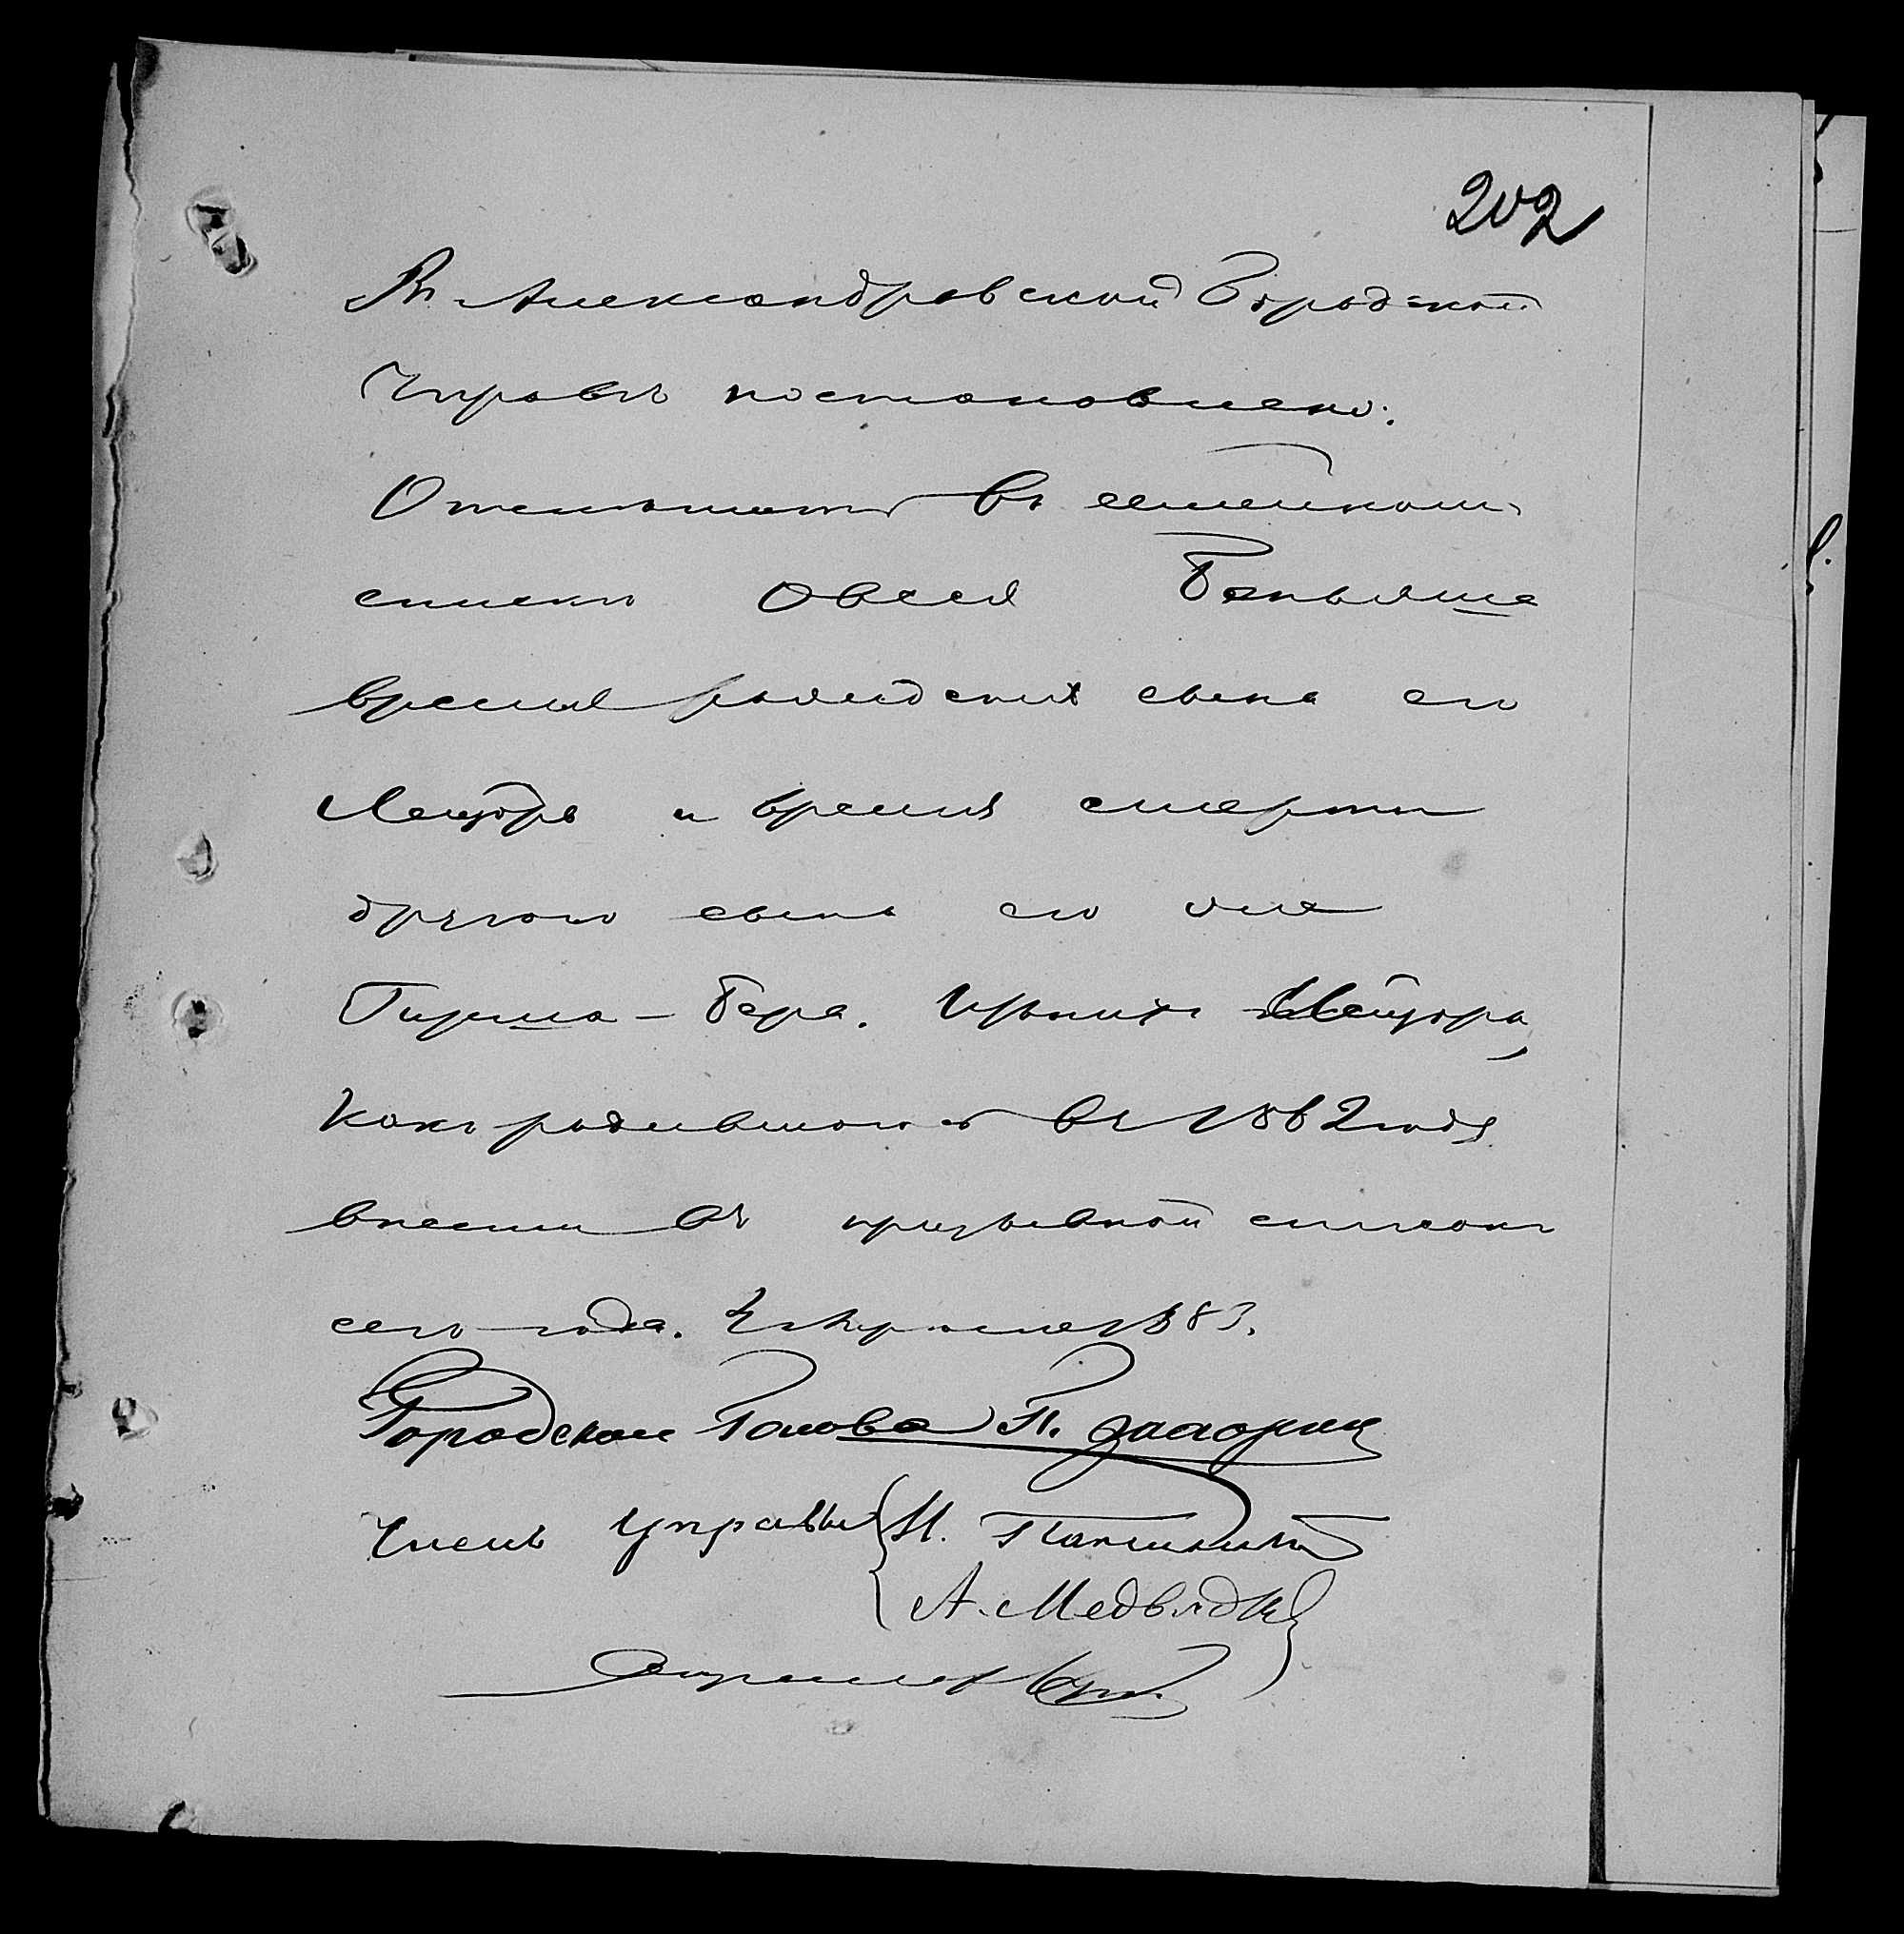 202
Въ Александровской Городской
Управѣ постановлено:
Отмѣтить въ семейномъ
спискѣ Овсея Беньяша
время рожденія сына его
Лейзора и время смерти
другого сына его же
Гирша-Бера. Лейзора,
какъ родившагося въ 1862 году
внести въ призывной списокъ
сего года. Апрѣля 1883.
Городской Голова П.
Члены Управы Н.
А. Медвѣдкѣ